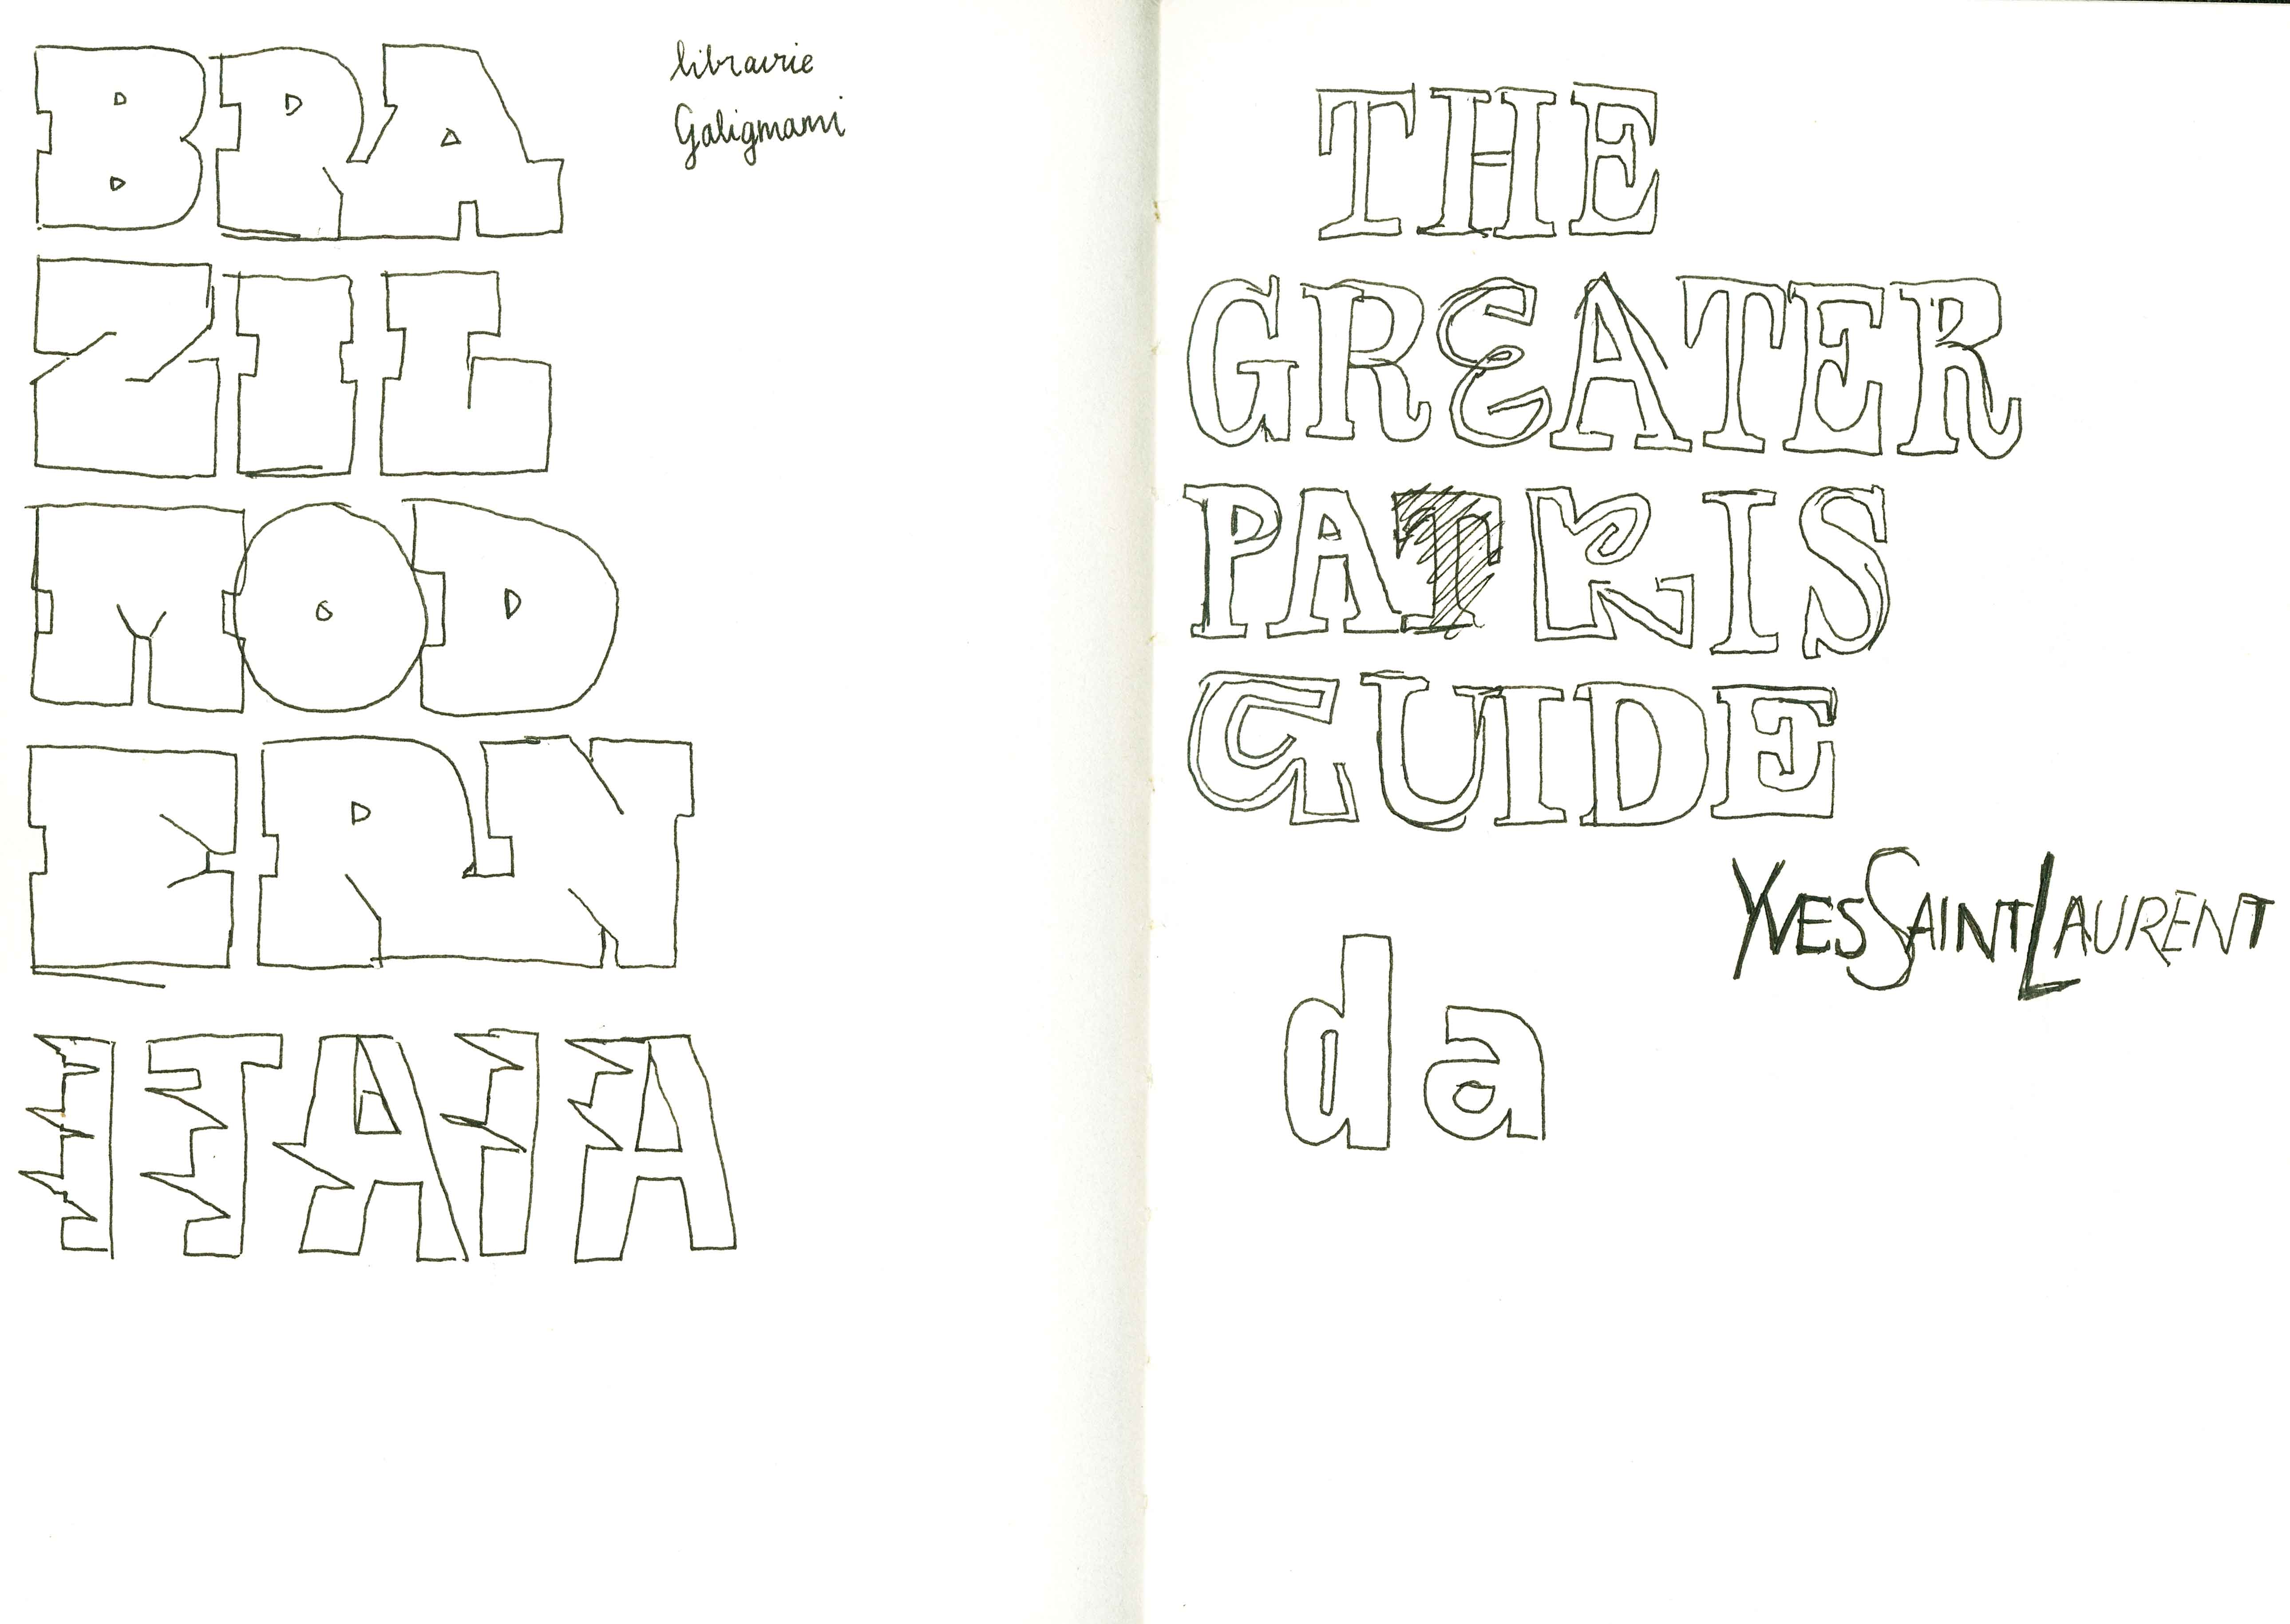 BRA
ZIL
MOD
ERN
ITAIA
librairie
Galignani
THE
GREATER
PARIS
GUIDE
YVESSAINTLAURENT
da